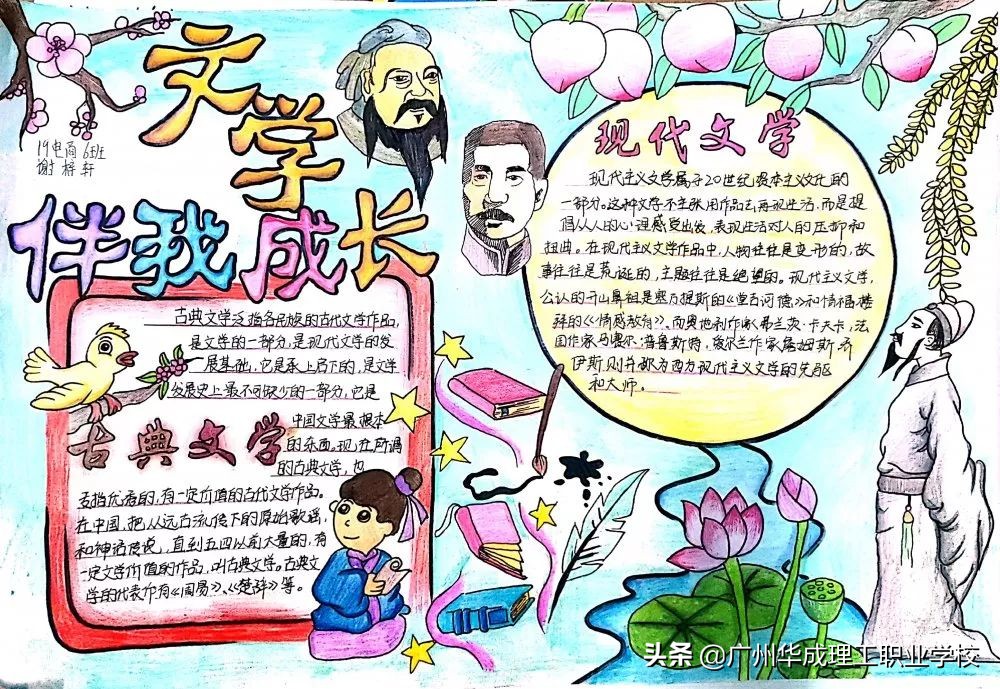 文学
伴我成长
19电商6班
谢梓轩
古典文学泛指各民族的古代文学作品,
是文学的一部分,是现代文学的发
展基础,它是承上启下的,是文学
发展史上最不可缺少的一部分,它是
古典文学
中国文学最根本
的东西。现在所谓
的古典文学,也
多指优秀的,有一定价值的古代文学作品。
在中国,把从远古流传下的原始歌谣,
和神话传说,直到五四以前大量的,有
一定文学价值的作品,叫古典文学。古典文
学的代表作有《周易》、《楚辞》等。
现代文学
现代主义文学属于20世纪资本主义文化的
一部分。这种文学不主张用作品去再现生活,而是提
倡从人的心理感觉出发,表现生活对人的压抑和
扭曲。在现代主义文学作品中,人物往往是变形的,故
事往往是荒诞的,主题往往是绝望的。现代主义文学,
公认的开山鼻祖是塞万提斯的《堂吉诃德》和福楼
拜的《情感教育》、而奥地利作家弗兰茨·卡夫卡,法
国作家马塞尔·普鲁斯特,爱尔兰作家詹姆斯·乔
伊斯则并称为西方现代主义文学的先驱
和大师。
头条@广州华成理工职业学校